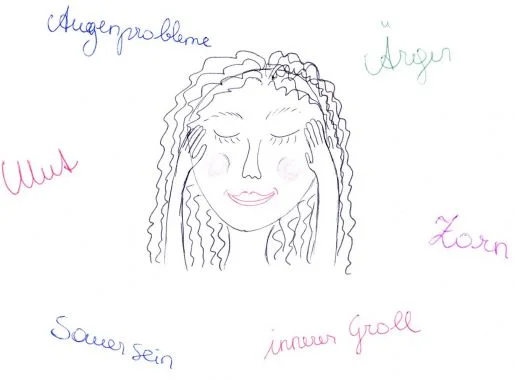 Augenprobleme
Ärger
Wut
Zorn
Sauer sein
innerer Groll